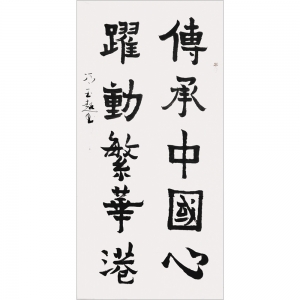 傳承中國心
躍動繁華港